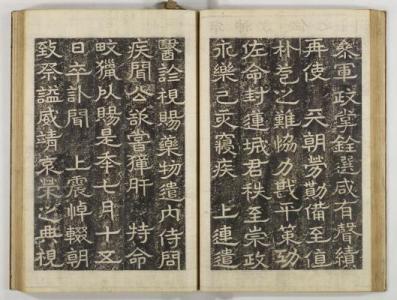 叅軍政掌銓選咸有聲績
再使 天朝勞勩備至值
朴苞之難協力戡平策功
佐命封蓮城君秩至崇政
永樂己亥寢疾 上連遣
醫診視賜藥物遣内侍問
疾聞公欲嘗獐肝 特命
畋獵以賜是年七月十五
日卒訃聞 上震悼輟朝
致祭諡威靖哀榮之典視